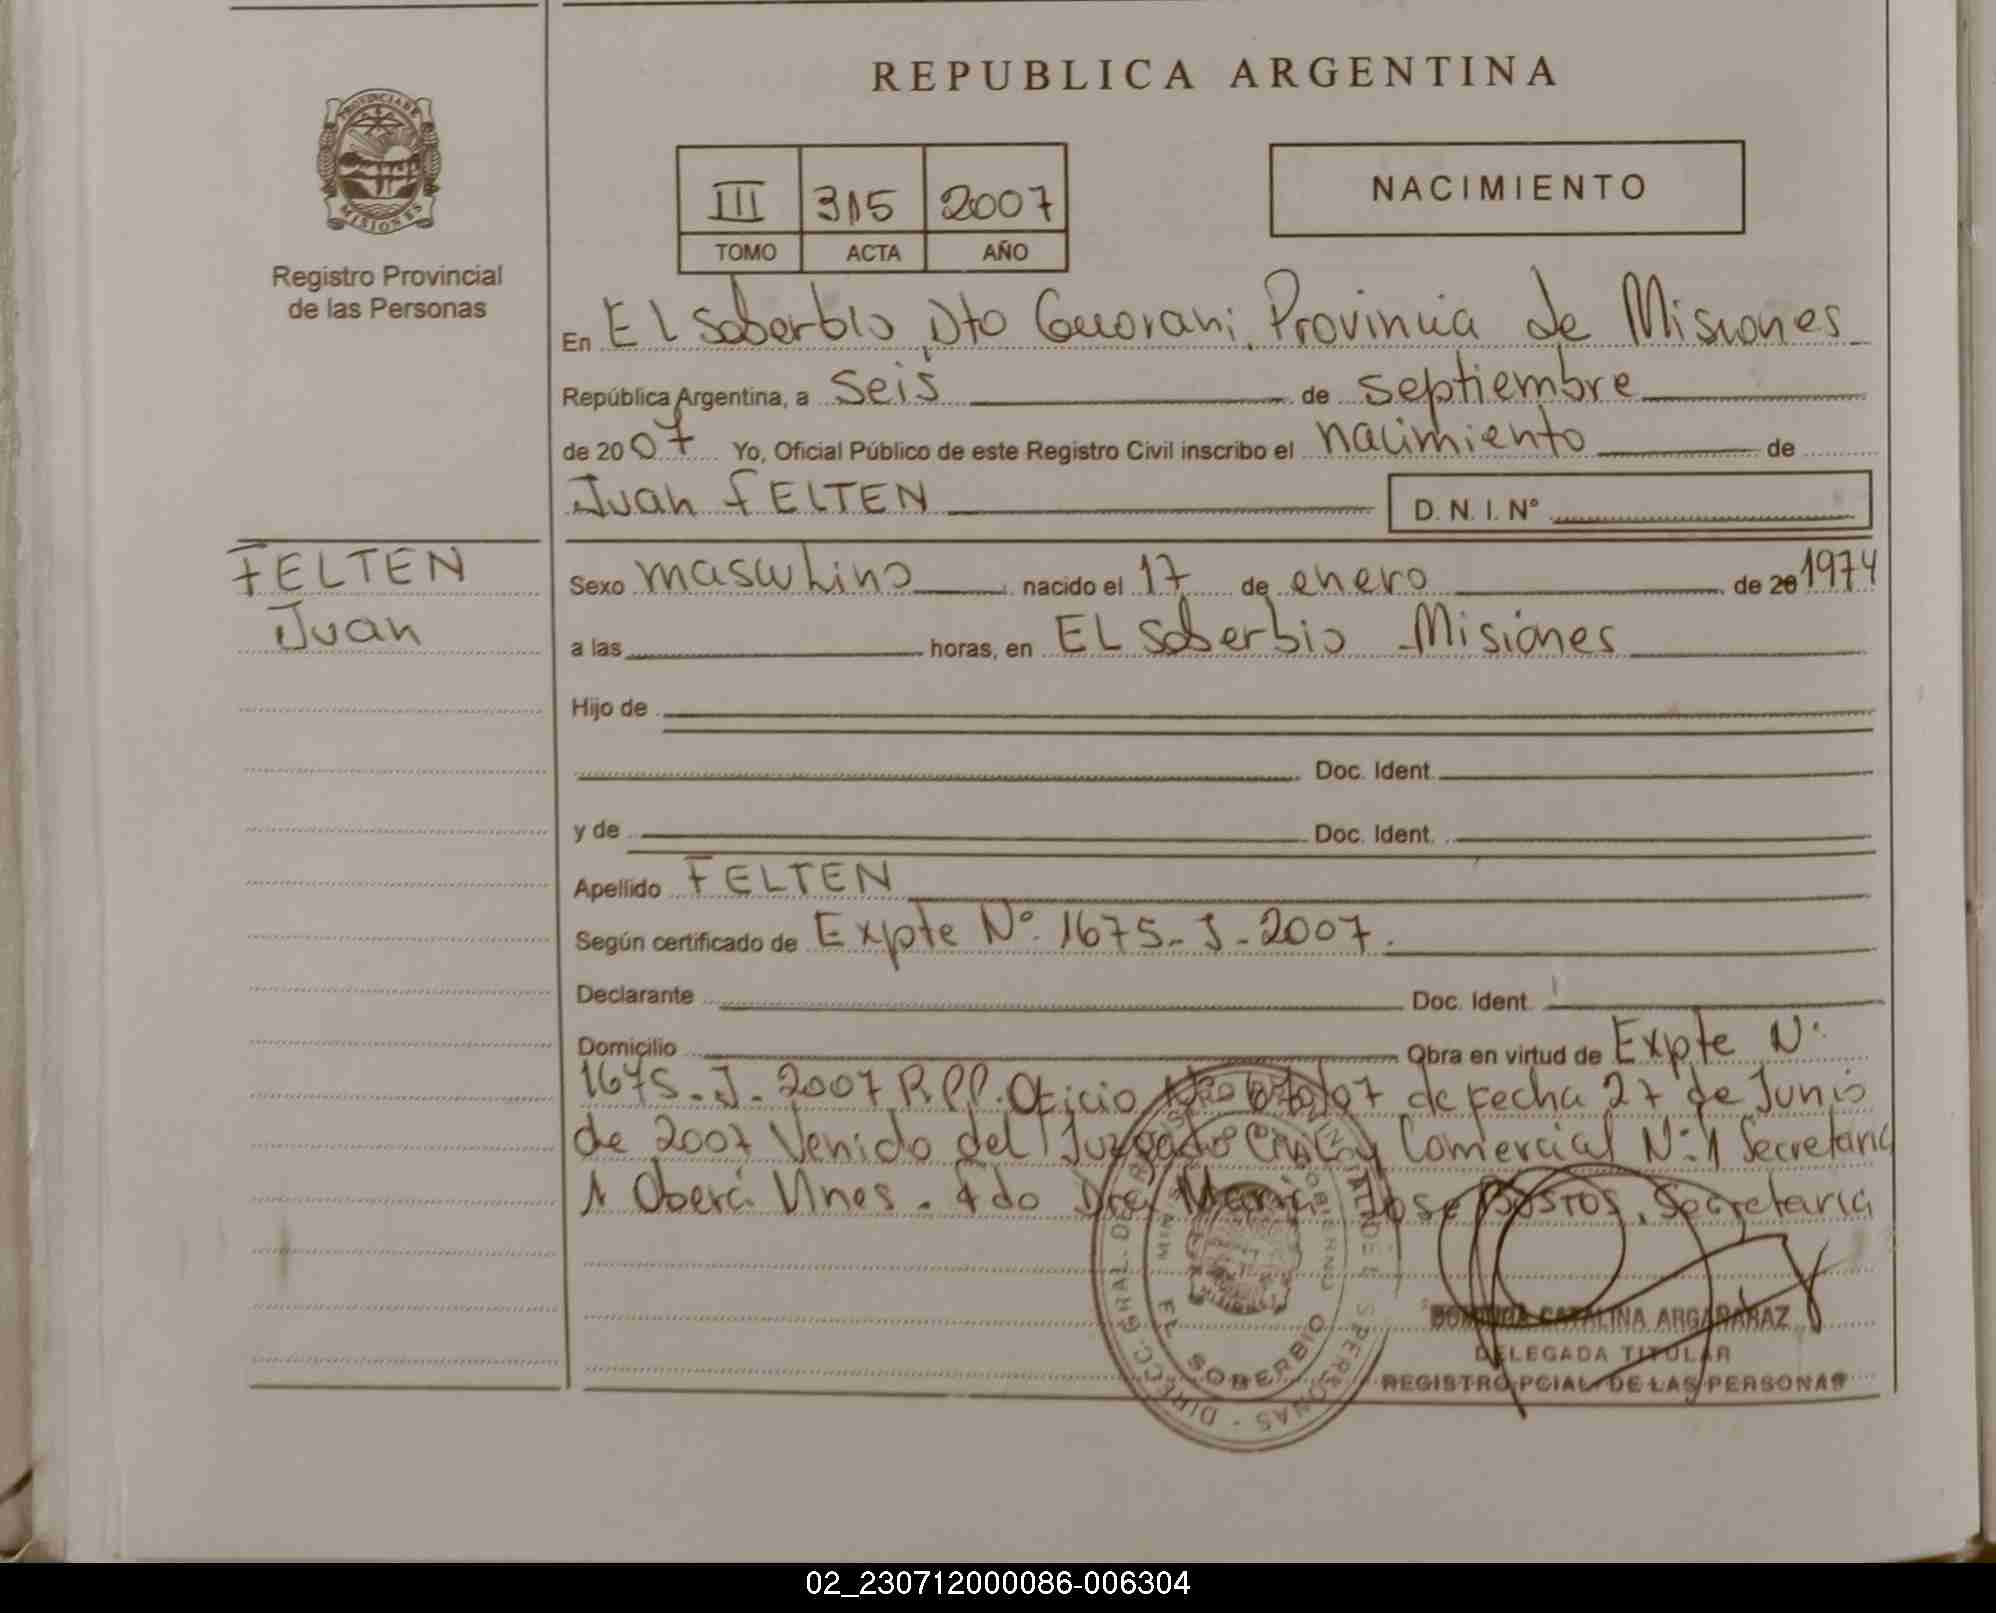 REPUBLICA ARGENTINA
PROVINCIA DE
MISIONES
Registro Provincial
de las Personas
III 315 2007
TOMO ACTA AÑO
NACIMIENTO
En El Soberbio, Dto Guarani. Provincia de Misiones
República Argentina, a seis de septiembre
de 2007 Yo, Oficial Público de este Registro Civil inscribo el nacimiento de
Juan FELTEN D. N. I. Nº
FELTEN
Juan
Sexo masculino nacido el 17 de enero de 20 1974
a las horas, en EL Soberbio Misiones
Hijo de
Doc. Ident.
y de Doc. Ident.
Apellido FELTEN
Según certificado de Expte Nº 1675-J-2007.
Declarante Doc. Ident.
Domicilio Obra en virtud de Expte Nº
1675-J-2007 R.P.P. Oficio de fecha 27 de Junio
de 2007 Venido del Juzgado Civil y Comercial Nº 1 Secretaria
1 Oberá Mnes. Fdo Dra Maria Jose BUSTOS, Secretaria
CATALINA ARGAÑARAZ
DELEGADA TITULAR
REGISTRO PCIAL. DE LAS PERSONAS
EL SOBERBIO
02_230712000086-006304